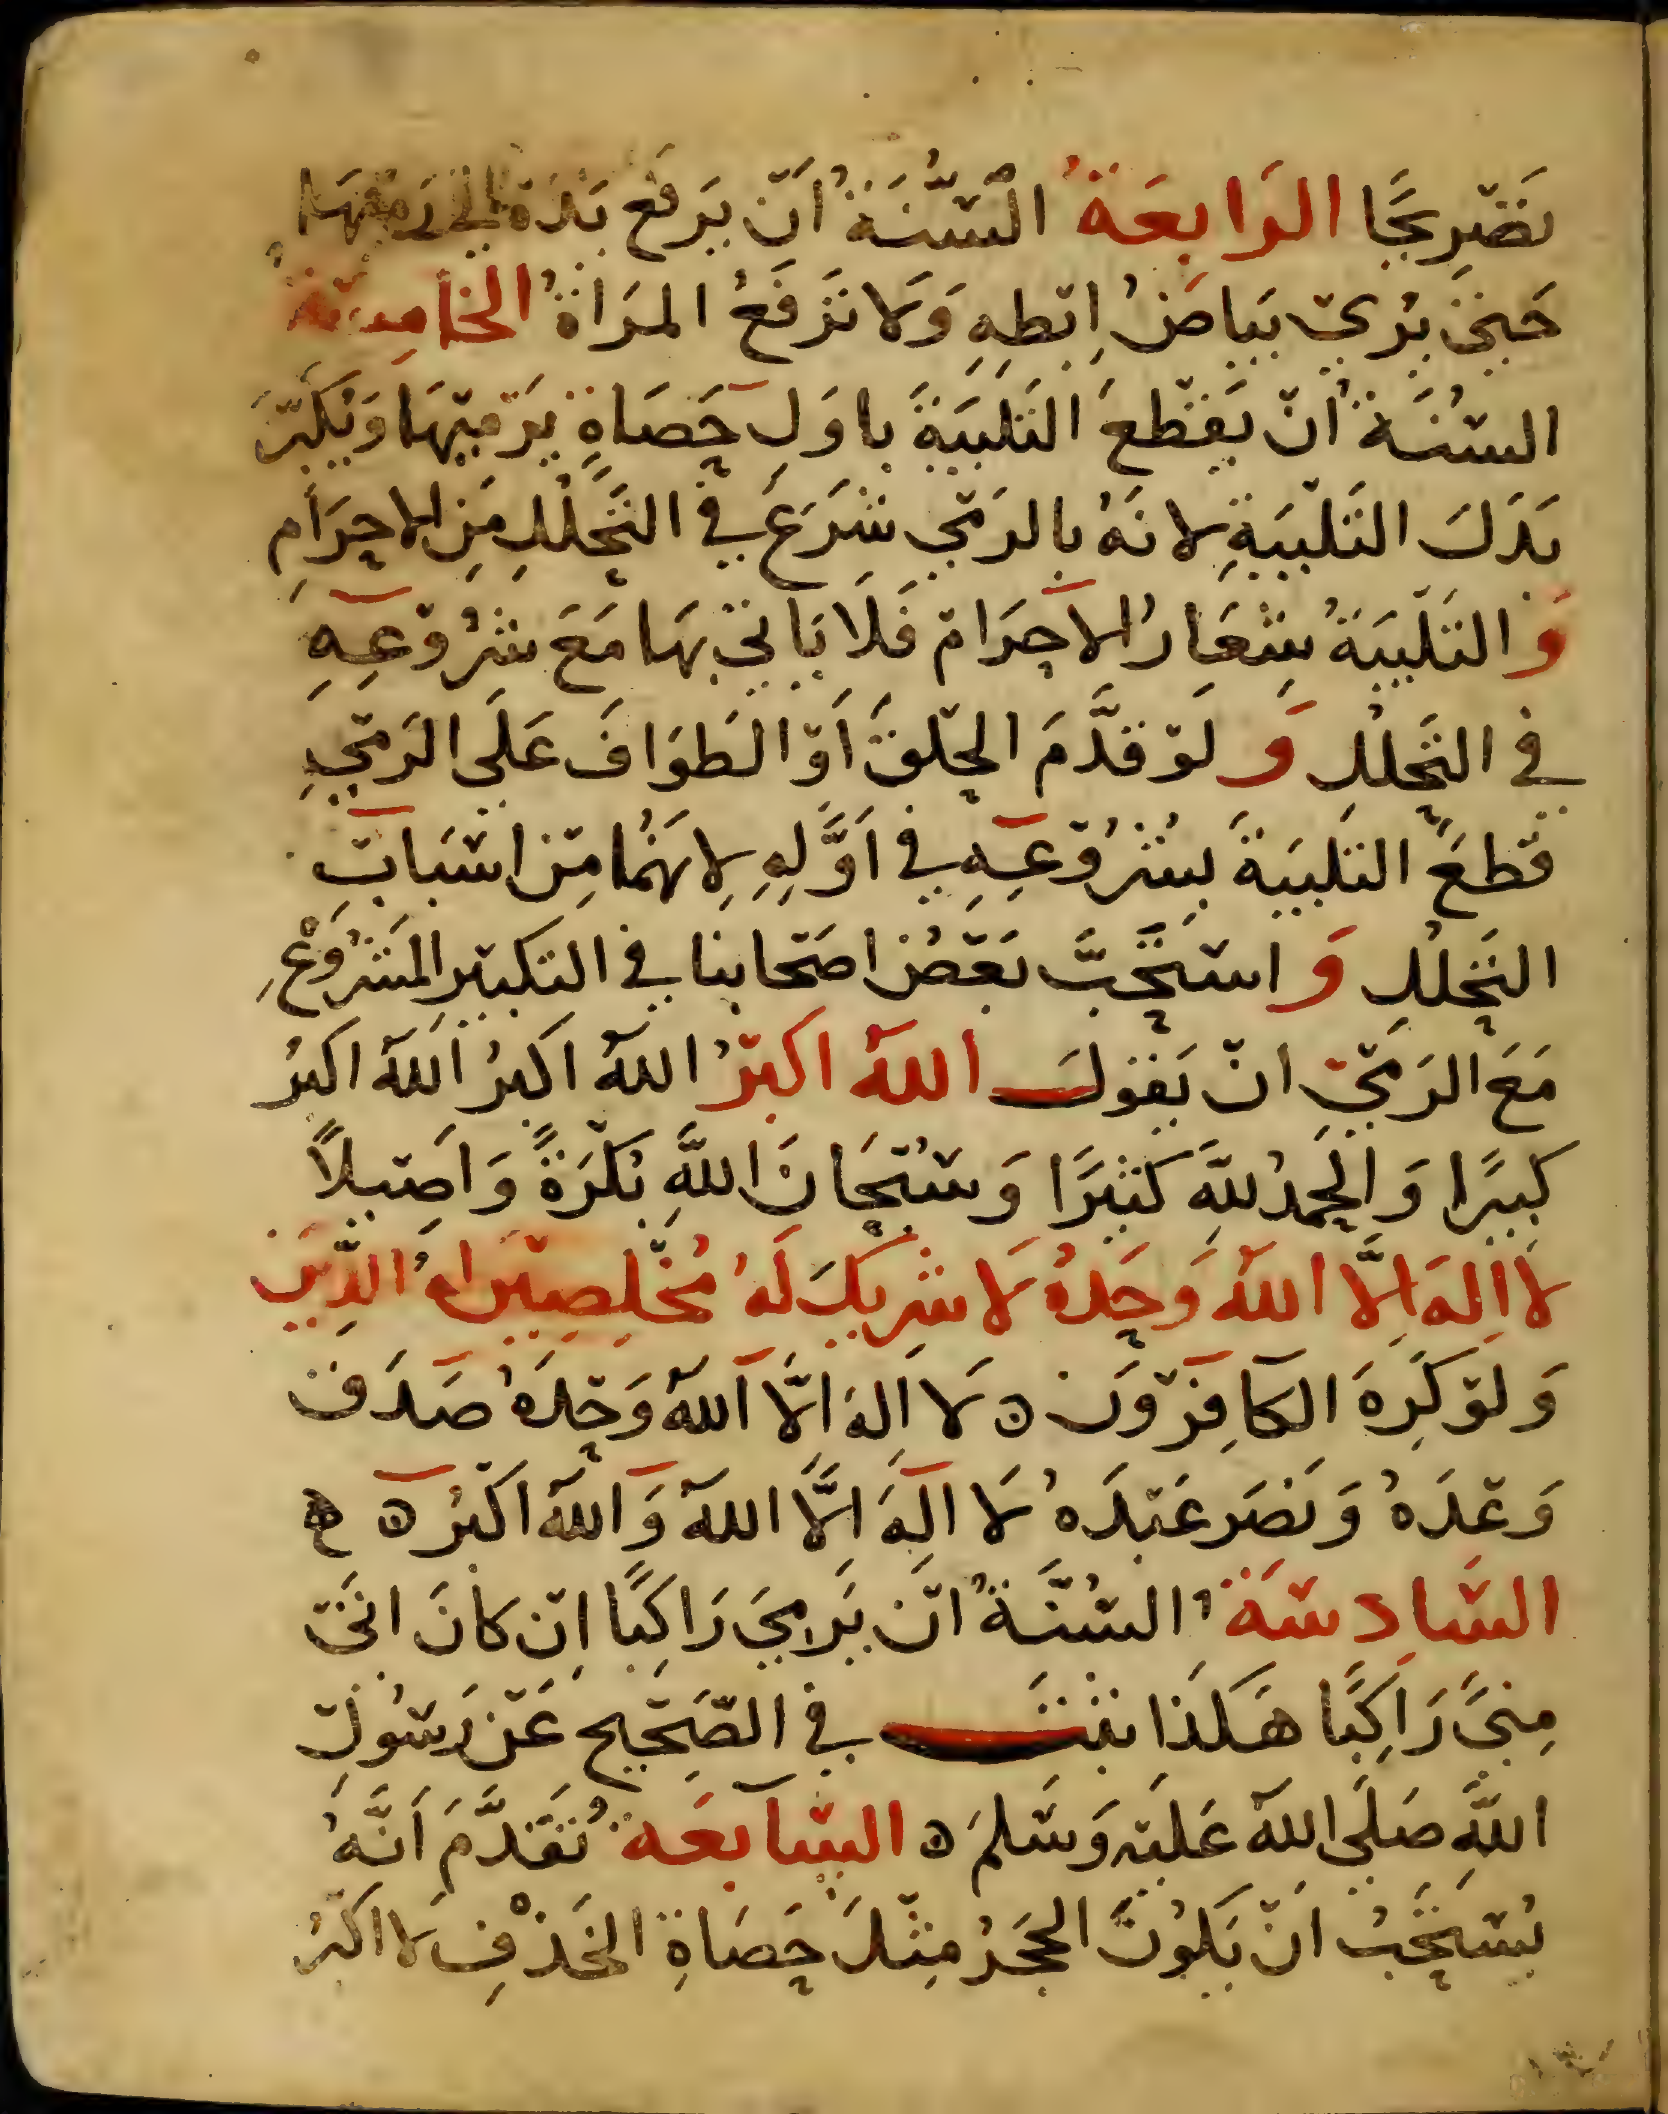 تصريحا الرابعة السنة ان يرفع يده في رميها
حتى يرى بياض ابطه ولا ترفع المراة الخامسة
السنة ان يقطع التلبية باول حصاة يرميها ويكبر
بدل التلبية لانه بالرمي شرع في التحلل من الاحرام
والتلبية شعار الاحرام فلا ياتي بها مع شروعه
في التحلل ولو قدم الحلق او الطواف على الرمي
قطع التلبية بشروعه في اوله لانهما من اسباب
التحلل واستحب بعض اصحابنا في التكبير المشروع
مع الرمي ان يقول الله اكبر الله اكبر الله اكبر
كبيرا والحمد لله كثيرا وسبحان الله بكرة واصيلا
لا اله الا الله وحده لا شريك له مخلصين له الدين
ولو كره الكافرون ه لا اله الا الله وحده صدق
وعده ونصر عبده لا اله الا الله والله اكبر ه ه
السادسة السنة ان يرمي راكبا ان كان اتى
منى راكبا هكذا ثبت في الصحيح عن رسول
الله صلى الله عليه وسلم ه السابعه تقدم انه
يستحب ان يكون الحجر مثل حصاة الخذف لا اكبر